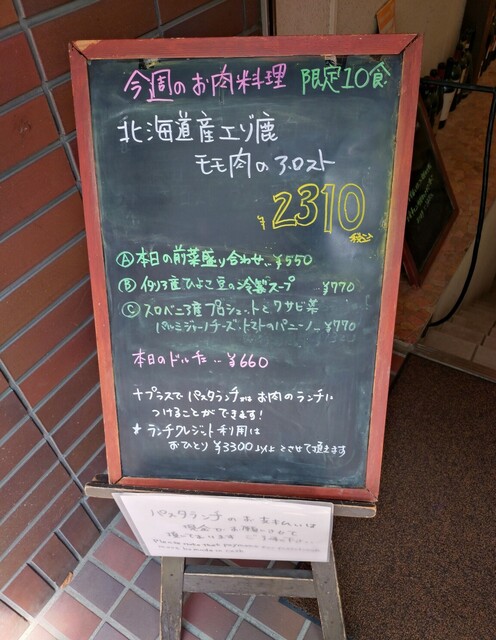 今週のお肉料理 限定10食
北海道産エゾ鹿
モモ肉のアロスト
¥2310
税込
Ⓐ本日の前菜盛り合わせ…¥550
Ⓑイタリア産ひよこ豆の冷製スープ ¥770
Ⓒスロベニア産プロシュットとワサビ菜
パルミジャーノチーズ、トマトのパニーノ…¥770
本日のドルチェ…¥660
+プラスで パスタランチ又はお肉のランチに
つけることができます!
* ランチクレジット利用は
おひとり ¥3300以上とさせて頂きます
パスタランチのお支払いは
現金でお願いさせて
頂いております ご了承下さい
Please note that payment
must be made in cash